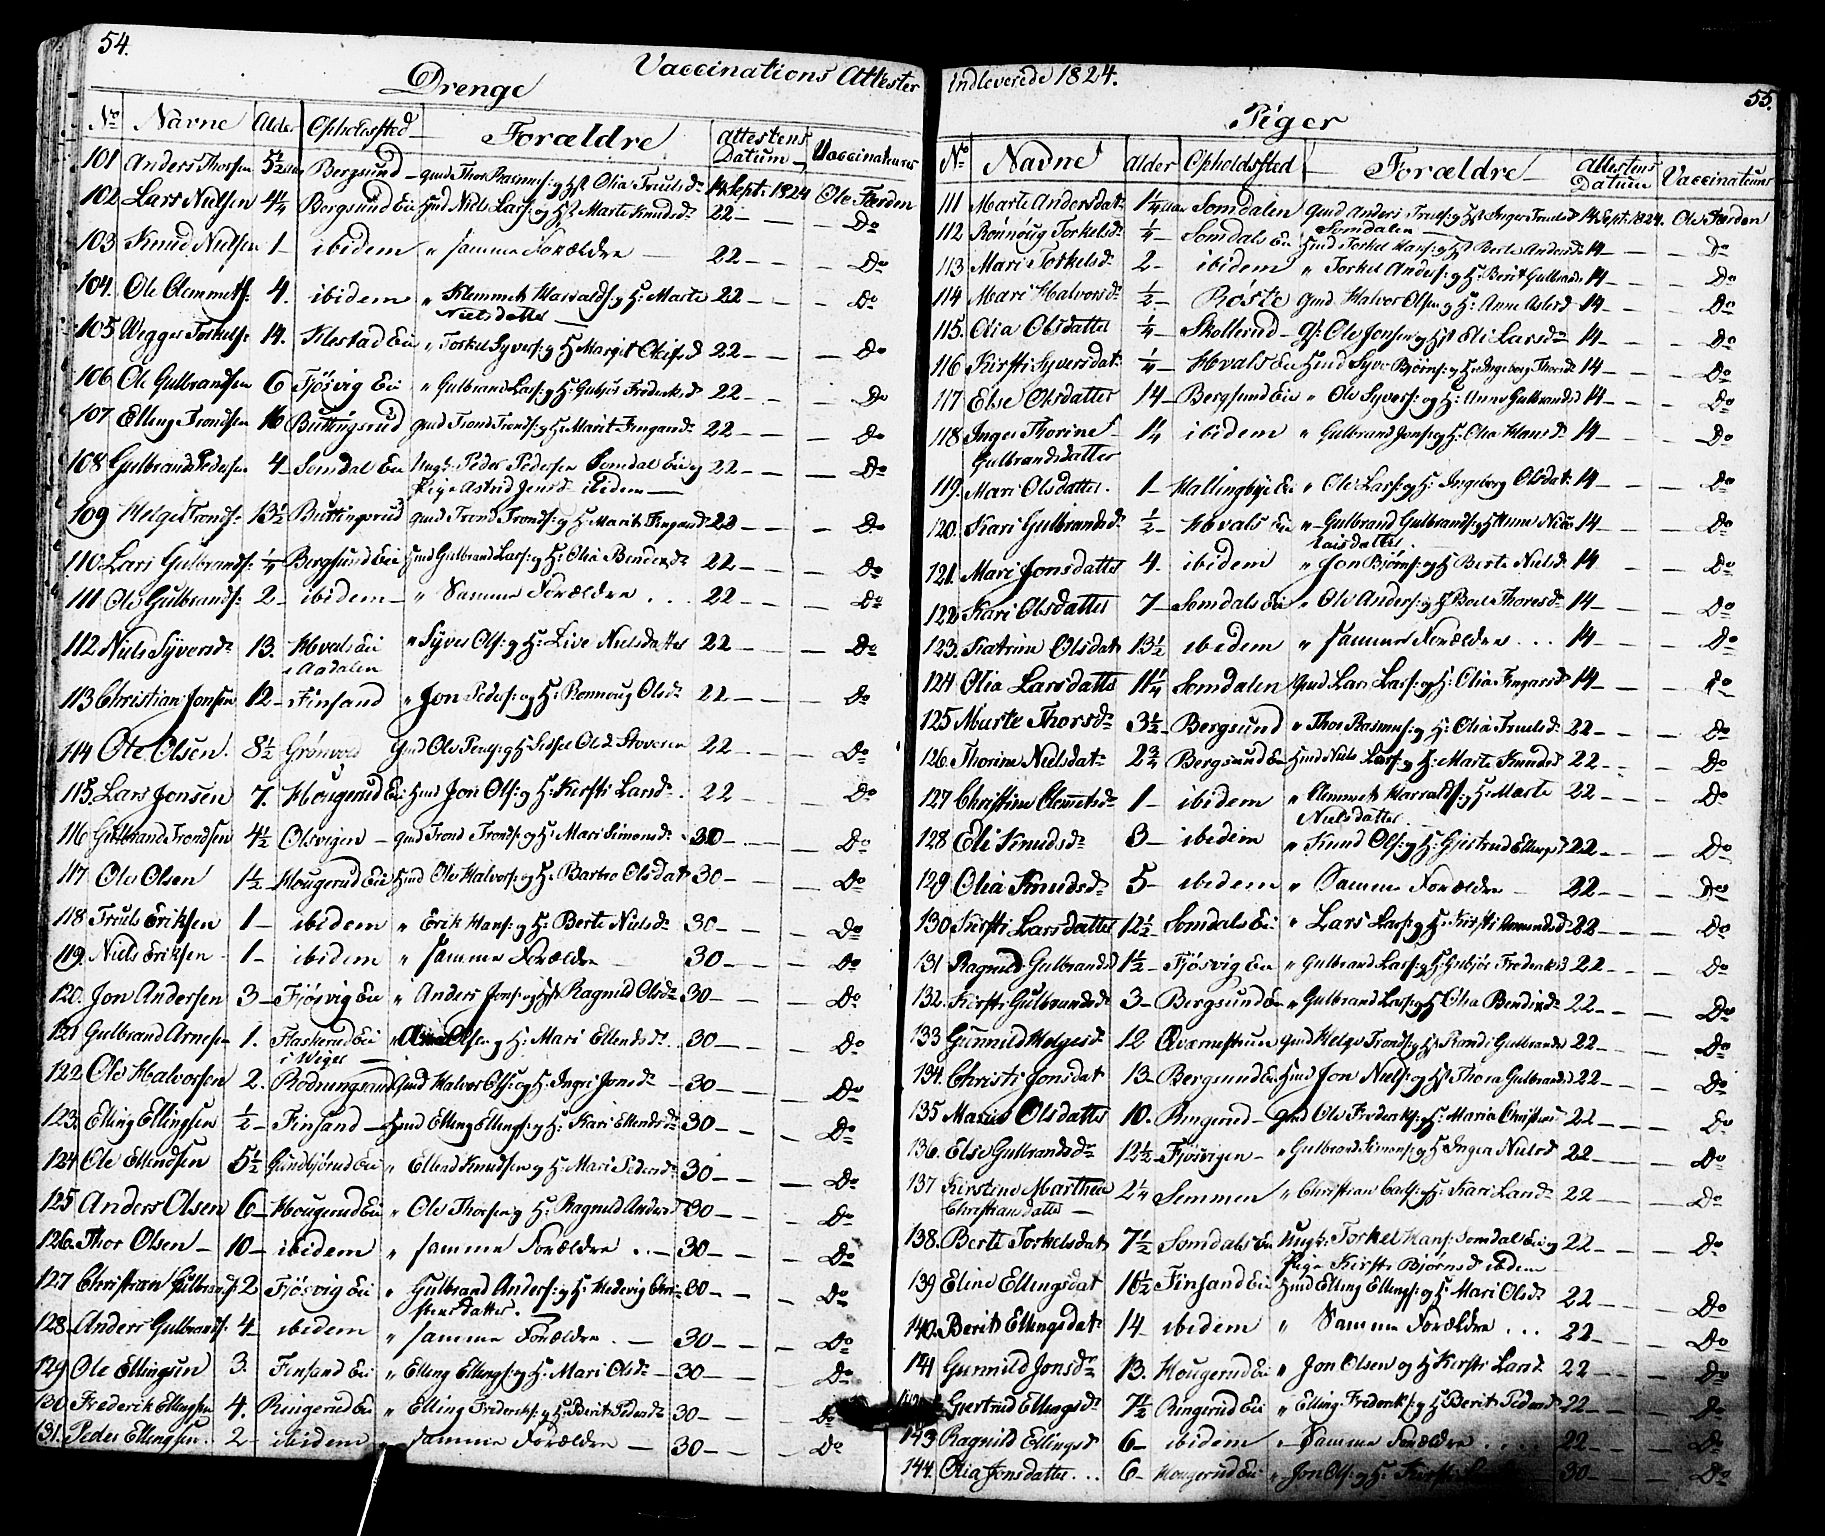 54.
Vaccinations Attester
Drenge
No Navne Alder Opholdssted Forældre Attestens Datum Vaccinateurs
101 Anders Thorsen 5½ Bergsund gmd Thor Rasmus: og Hst Olia Truls d: 14 Sept: 1824 Ole Færden
102 Lars Nielsen 4¼ Bergsund Eie Hmd Niels Lars: og Hst Marte Knudsd: 22 — — Do
103 Knud Nielsen 1 — ibidem „ samme Forældre — 22 — — Do
104. Ole Clemmets: 4. ibidem „ Klemmet Harvalds: og H: Marte 22 — — Do
Nielsdatter —
105 Torkels: 14. Klestad Eie „ Torkel Syvers: og H: Margit 22 — — Do
106 Ole Gulbrandsen 6 Fjösvig Eie „ Gulbrand Lars: og H: Gubjör Frederiksd 22 — — Do
107 Elling Trondsen 16 Buttingsrud gmd Trond Tronds: og H: Marit Fingarsd: 22 — — Do
108 Gulbrand Pedersen 4 — Somdal Eie Ungk: Peder Pedersen Somdal Eie og 22 — — Do
Pige Astrid Jensd ibidem —
109 Helge Tronds: 13½ Buttingsrud gmd Trond Tronds: og H: Marit Fingarsd: 22 — — Do
110 Lars Gulbrands: ¼ Bergsund Eie Hmd Gulbrand Lars: og H: Olia Bendixd: 22 — — Do
111 Ole Gulbrands: 2 — ibidem — „ Samme Forældre . . . 22 — — Do
112 Niels Syvers: 13. Hvals Eie „ Syver Ols: og H: Live Nielsdatter 22 — — Do
i Aadalen
113 Christian Jonsen 12 — Finsand „ Jon Peders: og H: Ronnoug Olsd: 22 — — Do
114 Ole Olsen. 8½ Grönvold Gmd Ole og H: Sidsel Olsd: 22 — — Do
115. Lars Jonsen 7. Hougerud Eie Hmd Jon Ols: og H: Kirsti Larsd: 22 — — Do
116 Gulbrand Trondsen 4½ Olsvigen — gmd Trond Tronds: og H: Mari Simonsd: 30 — — Do
117 Ole Olsen 1½ — Hougerud Eie Hmd Ole Halvors: og H: Barbro Olsdat: 30 — — Do
118 Truls Eriksen 1 — ibidem „ Erik Hans: og H: Berte Nielsd: 30 — — Do
119. Niels Eriksen 1 — ibidem „ samme Forældre — 30 — — Do
120. Jon Andersen 3 — Fjösvig Eie „ Anders Jons: og Hst Ragnild Olsd: 30 — — Do
121 Gulbrand Arnesen 1. Flaskerud Eie „ Olsen og H: Mari Ellendsd: 30 — — Do
i Weger —
122 Ole Halvorsen 2. Rödningsand Gmd Halvor Ols: og H: Inger Jonsd: — 30 — — Do
123. Elling Ellingsen ½ — Finsand — Hmd Elling Ellings: og H: Kari Ellendsd: 30 — — Do
124 Ole Ellendsen 5½ Gundbjörud Eie „ Ellend Knudsen og H: Mari Pedersd: 30 — — Do
125 Anders Olsen 6 — Hougerud Eie „ Ole Thorsen og H: Ragnild Andersd 30 — — Do
126. Thor Olsen — 10 — ibidem „ samme Forældre . . — 30 — — Do
127 Christian Gulbrands: 2 Fjösvig Eie „ Gulbrand Anders: og H: Hedevig Chri- 30 — — Do
stensdatter. —
128. Anders Gulbrands: 4 — ibidem „ samme Forældre . — 30 — — Do
129 Ole Ellingsen 3. Finsand Eie „ Elling Ellings: og H: Mari Olsd: — 30 — — Do
130 Frederik Ellingsen 4. Ringerud Eie „ Elling Frederiks: og H: Berit Pedersd: 30 — — Do
131. Peder Ellingsen. 2 — ibidem „ samme Forældre — 30 — — Do
indleverede 1824.
55.
Piger
No Navne Alder Opholdssted Forældre Attestens Datum Vaccinateurs
111 Marte Andersdat: 1¼ Somdalen Gmd Anders Truls: og Hst Inger Trulsd: 14 Sept: 1824. Ole Færden
Somdalen —
112 Rönnoug Torkelsd: ¼ — Somdals Eie Hmd Torkel Hans: og Hst Berte Andersd: 14 — Do
113 Mari Torkelsd: 2 — ibidem „ Torkel Anders: og H: Berit Gulbrandsd: 14 — Do
114 Mari Halvorsd: ½ — Röste Gmd Halvor Olsen og H: Anne Aslesd 14 — Do
115. Olia Olsdatter ¼ Skollerud — G: Ole Jonsen og Hst Eli Larsd: 14 — Do
116 Kirsti Syversdat: ¼ — Hvals Eie Hmd Syver Björns: og H: Ingeborg Thorsd: 14 — Do
117 Else Olsdatter 14 — Bergsund Eie „ Ole Syvers: og H: Anne Gulbrandsd 14 — Do
118 Inger Thorine 1¼ ibidem „ Gulbrand Jons: og H: Olia Hansd: 14 — Do
Gulbrandsdatter
119. Mari Olsdatter. 1 — Hallingbye Eie „ Ole Lars: og H: Ingeborg Olsdat: 14 — Do
120. Kari Gulbrandsd: ½ — Hvals Eie „ Gulbrand Gulbrands: og H: Anne Nico 14 — Do
laisdatter.
121. Mari Jonsdatter 4. ibidem „ Jon Björns: og H: Berte Nielsd: 14 — Do
122 Kari Olsdatter 7 — Somdals Eie „ Ole Anders: og H: Thoresd: 14 — Do
123. Katrine Olsdat 13½ ibidem „ samme Forældre . . . 14 — Do
124 Olia Larsdatter 11¼ Somdalen Gmd Lars Lars: og H: Olia Fingarsd: 14 — Do
125 Marte Thorsd: 3½ — Bergsund „ Thor Rasmus: og H: Olia Trulsd: 22 — — Do
126. Thorine Nielsdat: 2¾ Bergsund Eie Hmd Niels Lars: og H: Marte Knudsd 22 — — Do
127 Christine Clemmetsd: 1 — ibidem „ Clemmet Harvalds: og H: Marte 22 — — Do
Nielsdatter —
128 Eli Knudsd: 3 — ibidem „ Knud Ols: og H: Gjertrud Ellingsd 22 — — Do
129 Olia Knudsd: 5 — ibidem „ Samme Forældre — 22 — — Do
130 Kirsti Larsdatter 12½ Somdals Eie „ Lars Lars: og H: Kirsti Amundsd 22 — — Do
131 Ragnild Gulbrandsd 1½ — Fjösvig Eie „ Gulbrand Lars: og H: Gubjör Frederiksd 22 — — Do
132. Kirsti Gulbrandsd: 3 — Bergsund Eie „ Gulbrand Lars: og H: Olia Bendixd: 22 — — Do
133 Gunnild Helgesd: 12 Qværnestrun Gmd Helge Tronds: og Hst Randi Gulbrandsd 22 — — Do
134. Christi Jonsdat 13 — Bergsund Eie Hmd Jon Niels: og Hst Thora Gulbrandsd 22 — — Do
135 Maria Olsdatter 10. Ringerud — Gmd Ole Frederiks: og H: Maria Christiansd 22 — — Do
136. Else Gulbrandsd: 12½ — Fjösvigen — „ Gulbrand Simons: og H: Inger Nielsd 22 — — Do
137 Kirstine Marthea 2¼ Semmen „ Christian Carls: og H: Kari Larsd: 22 — — Do
Christiansdatter —
138. Berte Torkelsdat 7½ Somdals Eie Ungk: Torkel Hans: Somdal Eie og 22 — — Do
Pige Kirsti Björnsd ibidem
139 Eline Ellingsdat 16½ Finsand Eie Hmd Elling Ellings: og H: Mari Olsd: 22 — — Do
140. Berit Ellingsdat: 14 — ibidem „ Samme Forældre . . . 22 — — Do
141 Gunnild Jonsd: 13. Hougerud Eie „ Jon Olsen og H: Kirsti Larsd: 22 — — Do
Gjertrud Ellingsd: 7½ Ringerud Eie „ Elling Frederiks: og H: Berit Pedersd: 22 — — Do
143 Ragnild Ellingsd 6 — ibidem „ Samme Forældre . . . . 22 — — Do
144. Olia Jonsdatter . . . 6 — Hougerud Eie „ Jon Ols: og H: Kirsti 30 — — Do